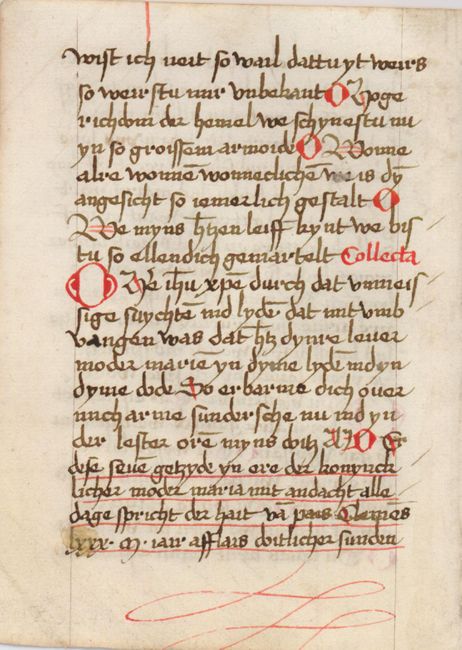 wist ich neit so wail dattu yt weirs
so weirstu mir vnbekant O Hoge
richdom der hemel we schynestu nu
yn so groissem armoide O Wonne
alre wonnē wonneclichen we is dȳ
angesicht so iemerlich gestalt O
We myns htzen leiff kynt we bis
tu so ellendich gemartelt Collecta
O He ihu xpe durch dat vnmeis
sige suychten ind lydē dat mit vmb
vangen was dat htz dynre leuer
moder marien yn dyme lyden ind yn
dyme dode So erbarme dich ouer
mich arme sundersche nu ind yn
der lester oren myns doitz
dese seuē getzyde yn ere der konynck
licher moder maria mit andacht alle
dage spricht der hait vā pais Clemēs
lxxx. M. iair afflais doitlicher sunden